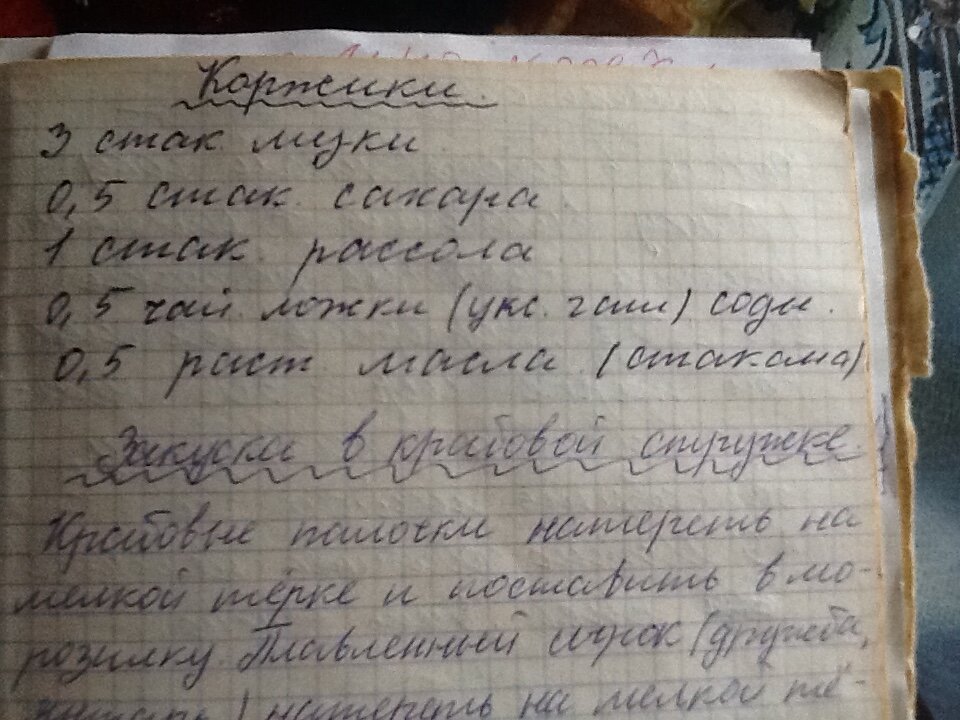 Коржики.
3 стак муки
0,5 стак. сахара
1 стак. рассола
0,5 чай. ложки (укс. гаш) соды.
0,5 раст масла (стакана)
Закуска в крабовой стружке.
Крабовые палочки натереть на
мелкой тёрке и поставить в мо-
розилку. Плавленный сырок (дружба,
) натереть на мелкой тё-